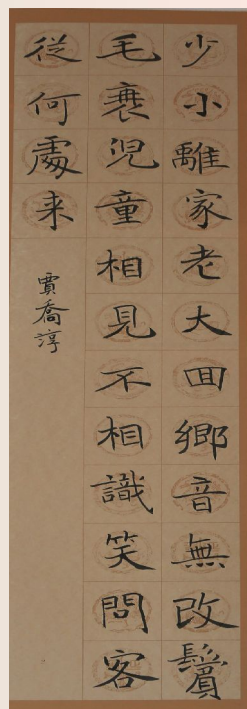 少小離家老大囬鄉音無改鬢
毛衰兒童相見不相識笑問客
從何處来
賈喬淳